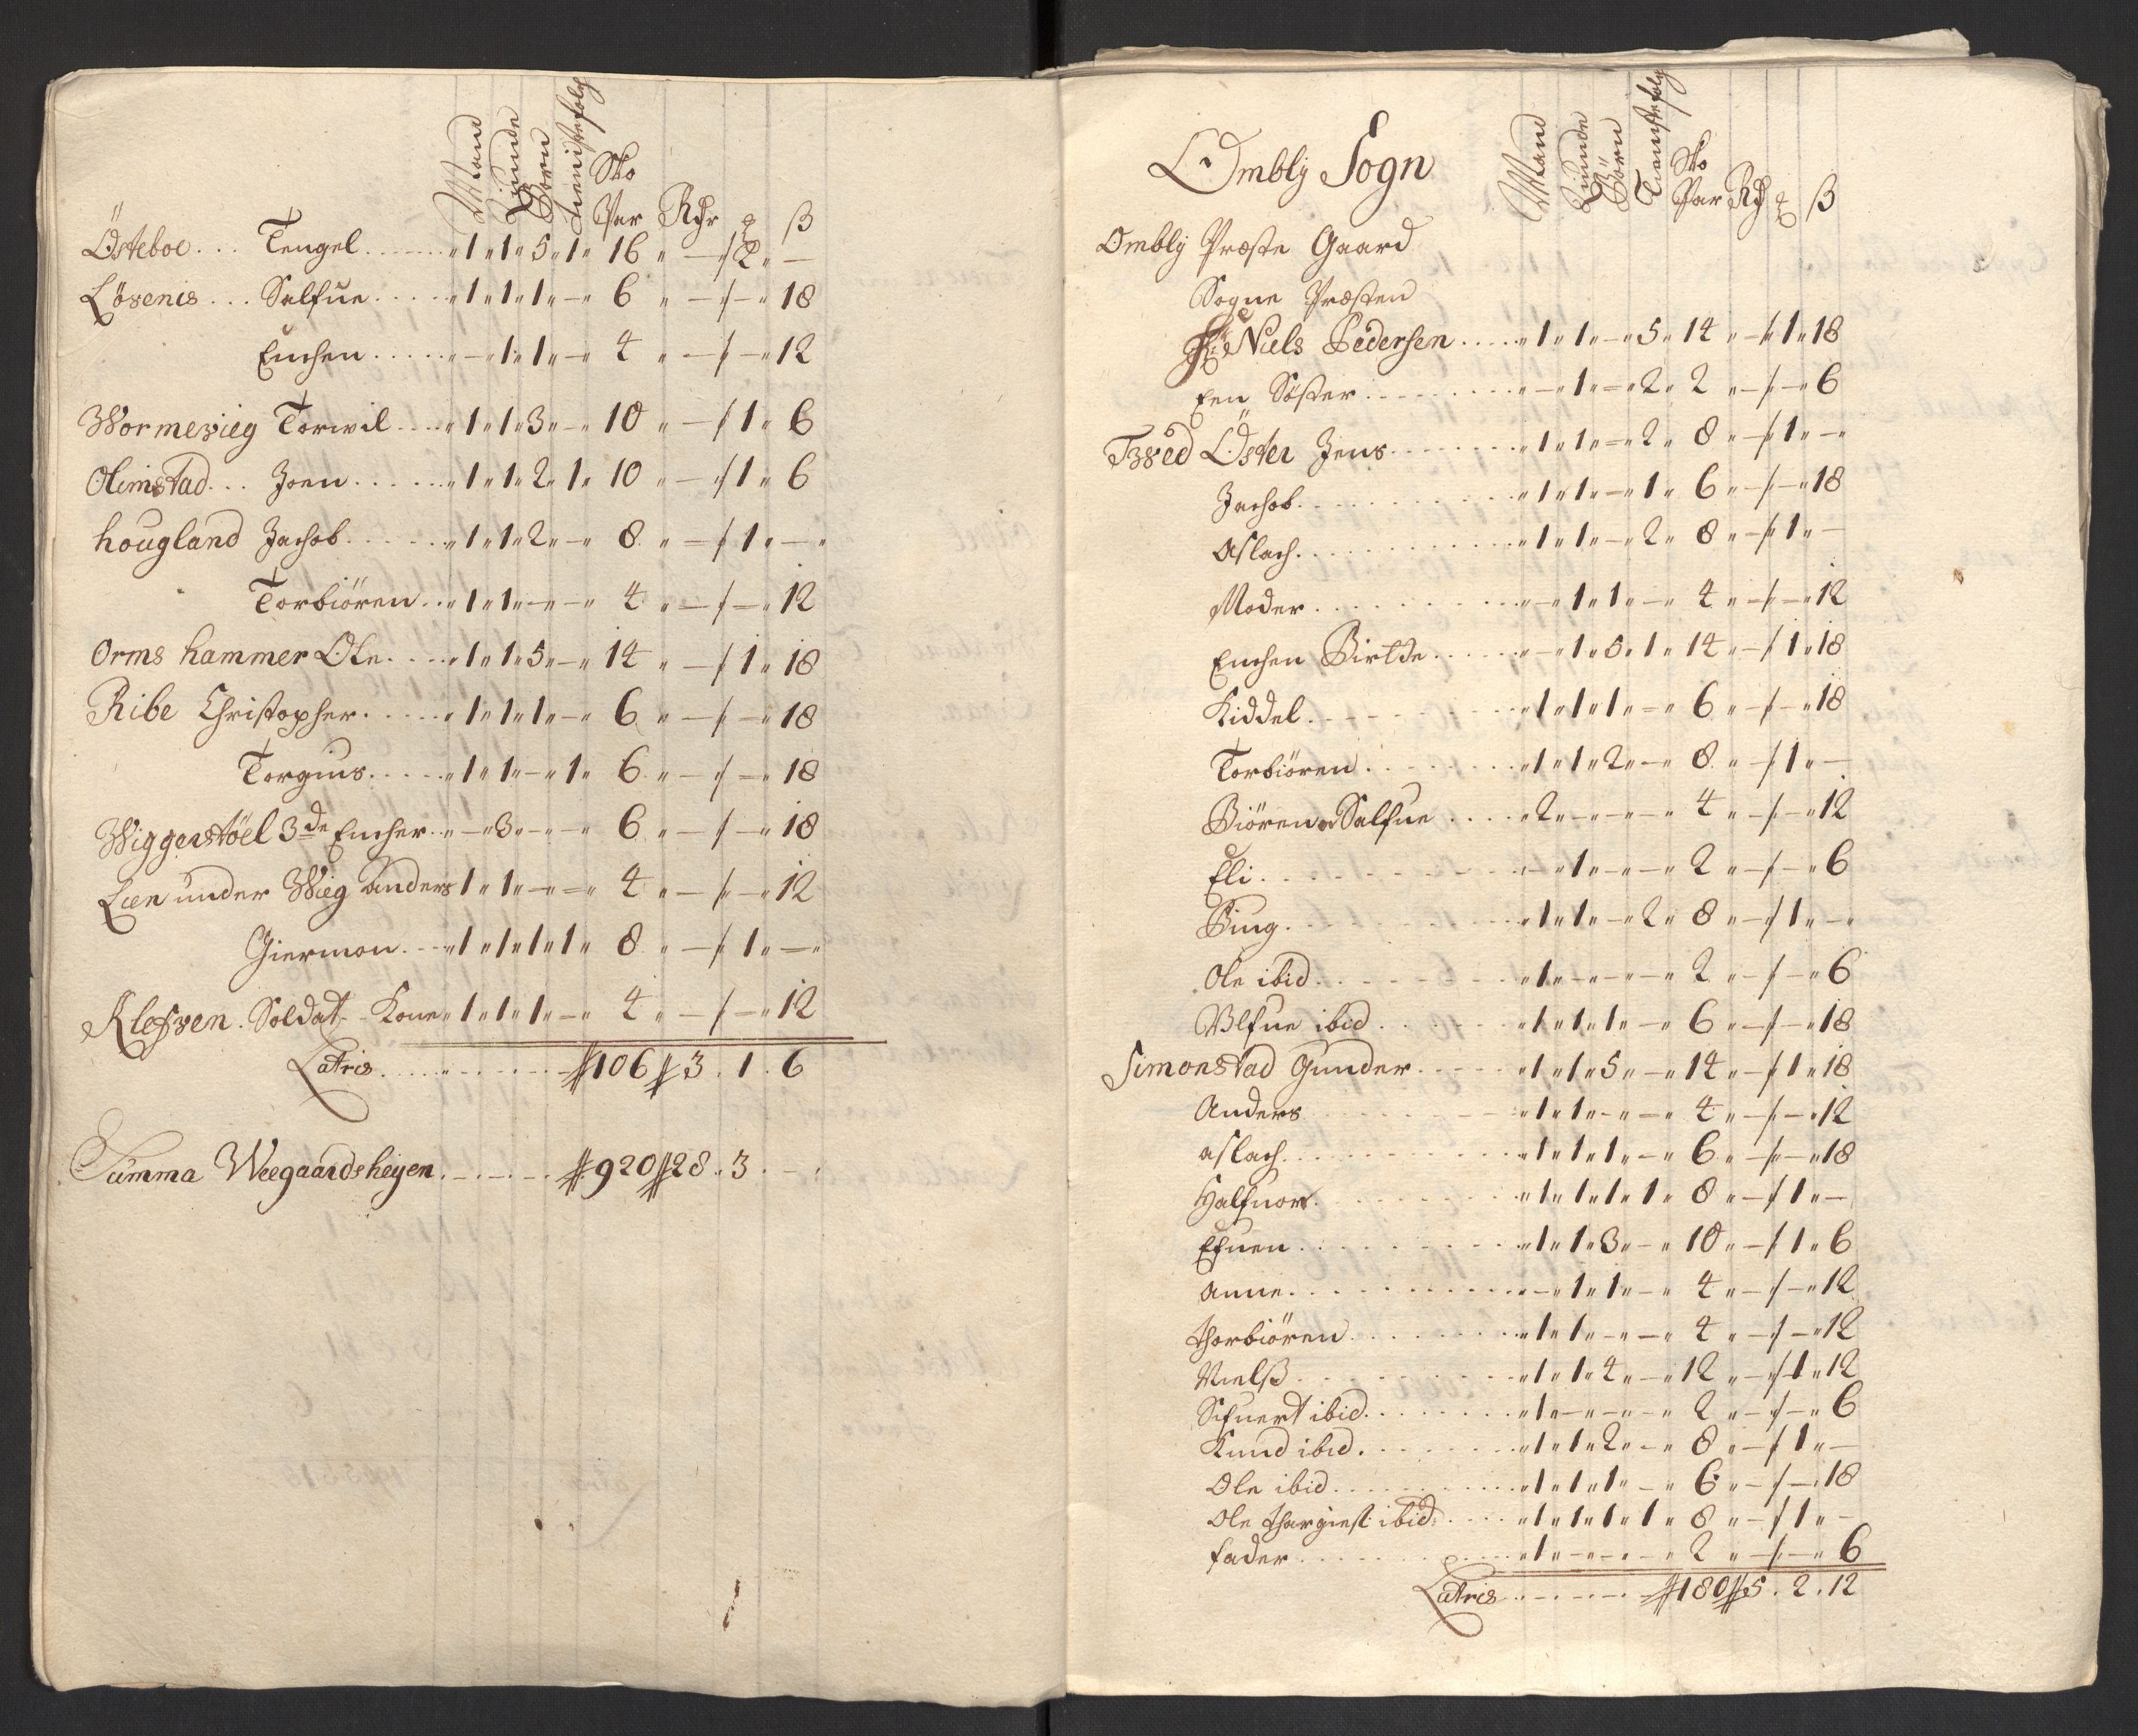 Mand Qvinde Börn Tienistefolch Sko Par Rdr ß
Östeboe... Tengel 1 1 5 1 16 - 2 -
Lövenes... Salfue 1 1 1 - 6 - - 18
Enchen - 1 1 - 4 - - 12
Wormevieg Torwil 1 1 3 - 10 - 1 6
Olimstad... Joen 1 1 2 1 10 - 1 6
hougland Jachob 1 1 2 - 8 - 1 -
Torbiören 1 1 - - 4 - - 12
Orms hammer Ole 1 1 5 - 14 - 1 18
Ribe Christopher 1 1 1 - 6 - - 18
Torgius 1 1 - 1 6 - - 18
Wiggerstöel 3de Encher - 3 - - 6 - - 18
Lien under Wieg anders 1 1 - - 4 - - 12
Giermon 1 1 1 1 8 - 1 -
Klefven. Soldat - Kone 1 1 1 - 4 - - 12
Latris 106 3. 1. 6
Summa Weegaardsheyen 920 28. 3. -
Omblij Sogn
Mand Qvinde Börn Tienistefolch Sko Par Rd ß
Omblij Præste Gaard
Sogne Præsten
Hr: Niels Pedersen 1 1 - 5 14 - 1 18
Een Söster - 1 - 2 2 - - 6
Tved Öster Jens 1 1 - 2 8 - 1 -
Jachob 1 1 - 1 6 - - 18
Aslach 1 1 - 2 8 - 1 -
Moder - 1 1 - 4 - - 12
Enchen Birtde - 1 5 1 14 - 1 18
Kiddel 1 1 1 - 6 - - 18
Torbiören 1 1 2 - 8 - 1 -
Biören Salfue 2 - - - 4 - - 12
Eli - 1 - - 2 - - 6
Bing 1 1 - 2 8 - 1 -
Ole ibid 1 - - - 2 - - 6
Ulfue ibid 1 1 1 - 6 - - 18
Simonstad Gunder 1 1 5 - 14 - 1 18
Anders 1 1 - - 4 - - 12
aslach 1 1 1 - 6 - - 18
Halfuor 1 1 1 1 8 - 1 -
Efuen 1 1 3 - 10 - 1 6
Anne - 1 1 - 4 - - 12
thorbiören 1 1 - - 4 - - 12
Nielß 1 1 4 - 12 - 1 12
Sifuert ibid 1 - - - 2 - - 6
Knud ibid 1 1 2 - 8 - 1 -
Ole ibid 1 1 1 - 6 - - 18
Ole thargiest: ibid 1 1 1 1 8 - 1 -
fader 1 - - - 2 - - 6
Latris 180 5. 2. 12